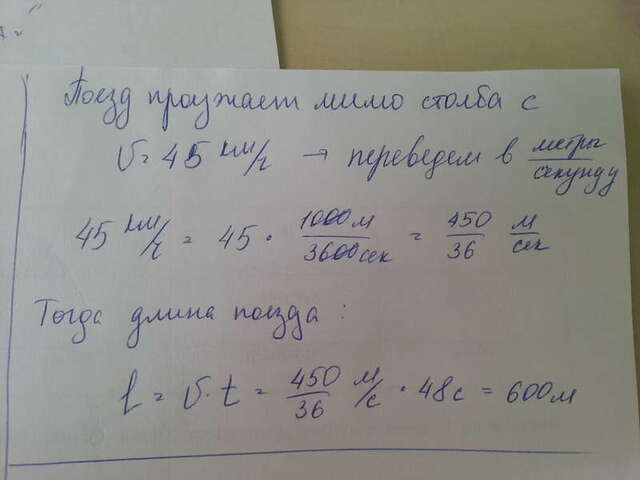 Поезд проезжает мимо столба с
v = 45 км/ч → переведем в метры/секунду
45 км/ч = 45 · 1000м/3600сек = 450/36 м/сек
Тогда длина поезда :
l = v · t = 450/36 м/с · 48с = 600м